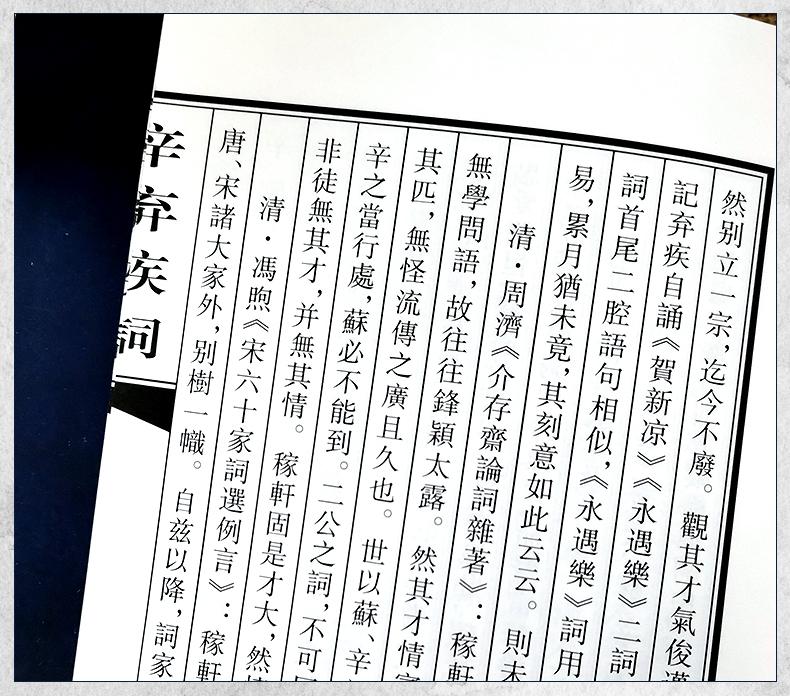 然別立一宗，迄今不廢。觀其才氣俊邁
記弃疾自誦《賀新凉》《永遇樂》二詞
詞首尾二腔語句相似，《永遇樂》詞用
易，累月猶未竟，其刻意如此云云。則未
清·周濟《介存齋論詞雜著》：稼軒
無學問語，故往往鋒穎太露。然其才情富
其匹，無怪流傳之廣且久也。世以蘇、辛
辛之當行處，蘇必不能到。二公之詞，不可同
非徒無其才，并無其情。稼軒固是才大，然情
清·馮煦《宋六十家詞選例言》：稼軒
唐、宋諸大家外，別樹一幟。自兹以降，詞家
辛弃疾詞